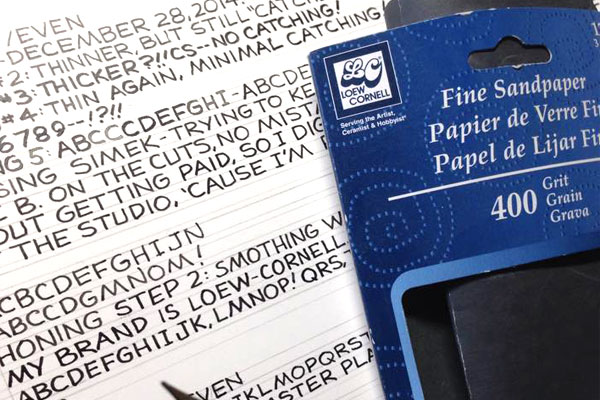 /EVEN
-DECEMBER 28, 2014.
#2: THINNER, BUT STILL "CATCH
#3: THICKER?!!CS--NO CATCHING!
#4: THIN AGAIN, MINIMAL CATCHING
6789--!?!!
NG 5: ABCCCDEFGHI-ABCDE
SING SIMEK-TRYING TO KE
L B. ON THE CUTS, NO MIST
OUT GETTING PAID, SO I DIG
THE STUDIO, 'CAUSE I'M
CBCDEFGHIJN
ABCCDGMNOM!
HONING STEP 2: SMOTHING W
MY BRAND IS LOEW-CORNELL.
ABCDEFGHIIJK, LMNOP! QRS,
/EVEN
IKLMOPQRST
ASTER PLA
L&C
LOEW
CORNELL
Serving the Artist,
Ceramist & Hobbyist
Fine Sandpaper
Papier de Verre Fin
Papel de Lijar Fin
400 Grit
Grain
Grava